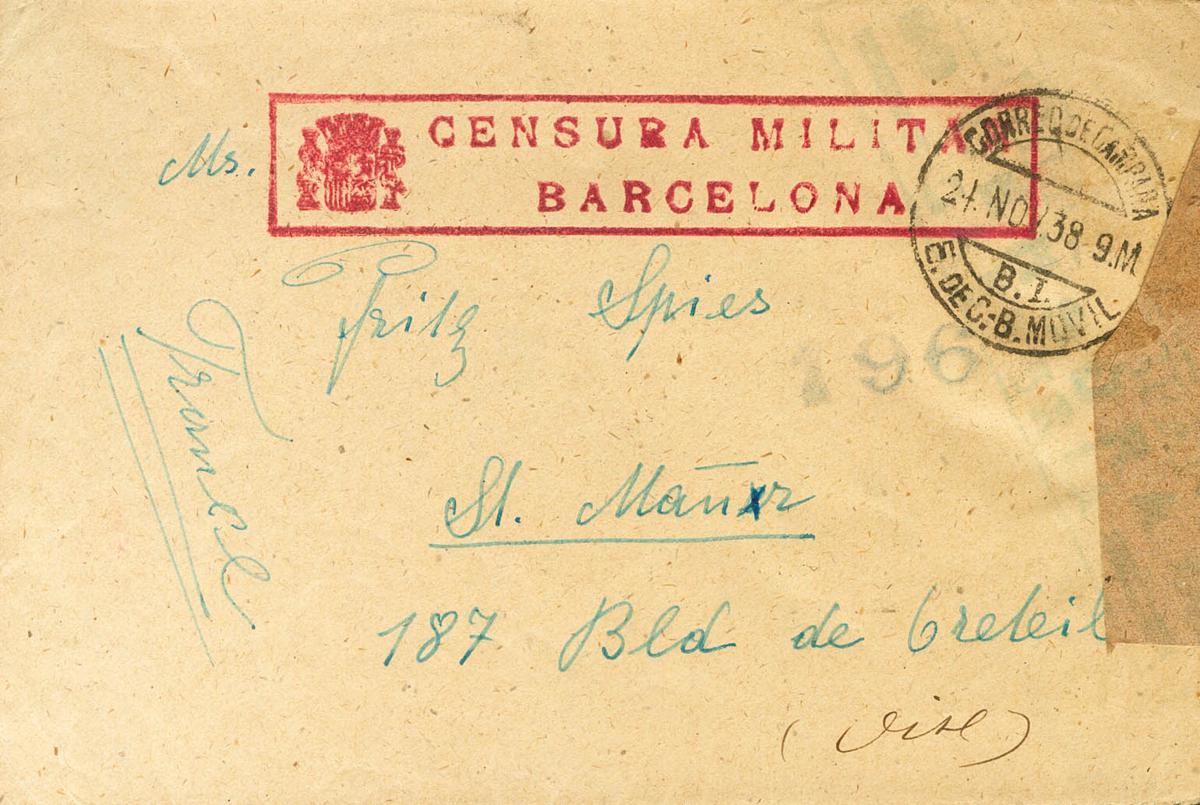 CENSURA MILITA
BARCELONA
CORREO DE CAMPAÑA
21 NOV.38 9.M
B. I.
E. DE C.-B. MOVIL
Ms.
Fritz Spies
196
France
St. Maur
187 Bld de Creteil
(Oise)